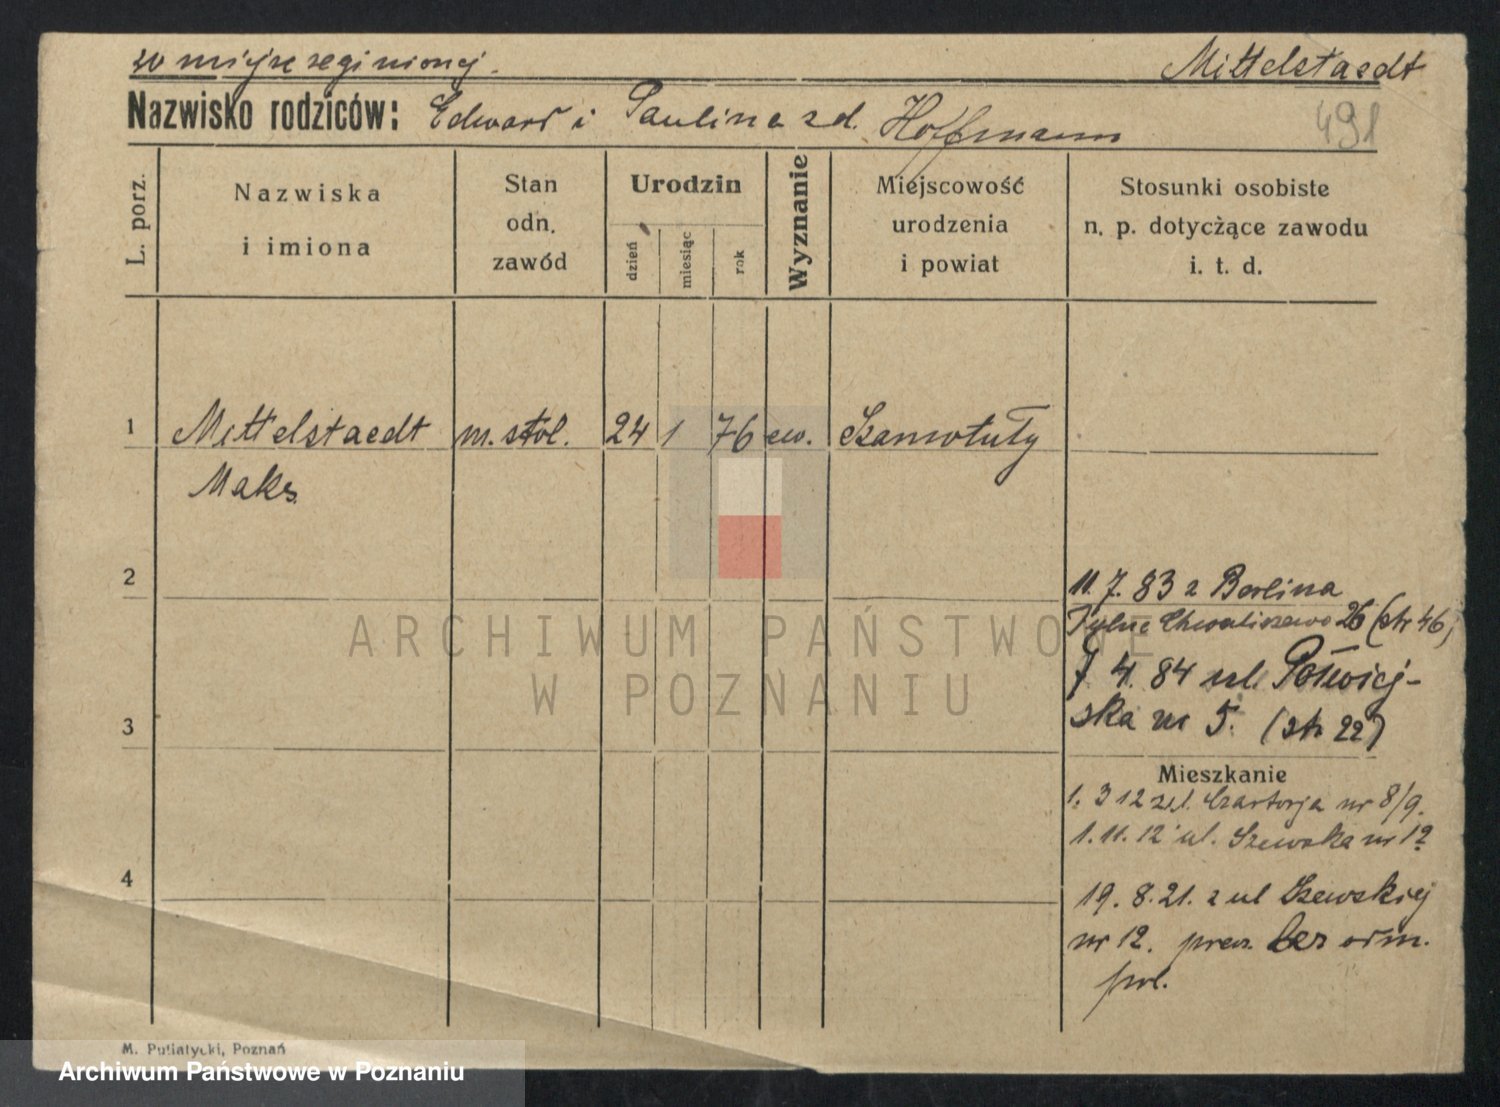 w miejsce zaginionej.
Mittelstaedt
Nazwisko rodziców: Edward i Paulina zd. Hoffmann
491
L. porz.
Nazwiska
i imiona
Stan
odn.
zawód
Urodzin
dzień
miesiąc
rok
Wyznanie
Miejscowość
urodzenia
i powiat
Stosunki osobiste
n. p. dotyczące zawodu
i. t. d.
1 Mittelstaedt m. stol. 24 1 76 ew. Szamotuły
Maks
2
11. 7. 83 z Berlina
Tylne Chwaliszewo 26 (str 46)
7 4. 84 ul.
ska nr 5. (str 22)
3
Mieszkanie
1. 3 12 ul. Czartorja nr 8/9.
1. 11. 12 ul. Szewska nr 12
4
19. 8. 21. z ul Szewskiej
nr 12. bez
pol.
M. Putiatycki, Poznań
ARCHIWUM PAŃSTWOWE
W POZNANIU
Archiwum Państwowe w Poznaniu